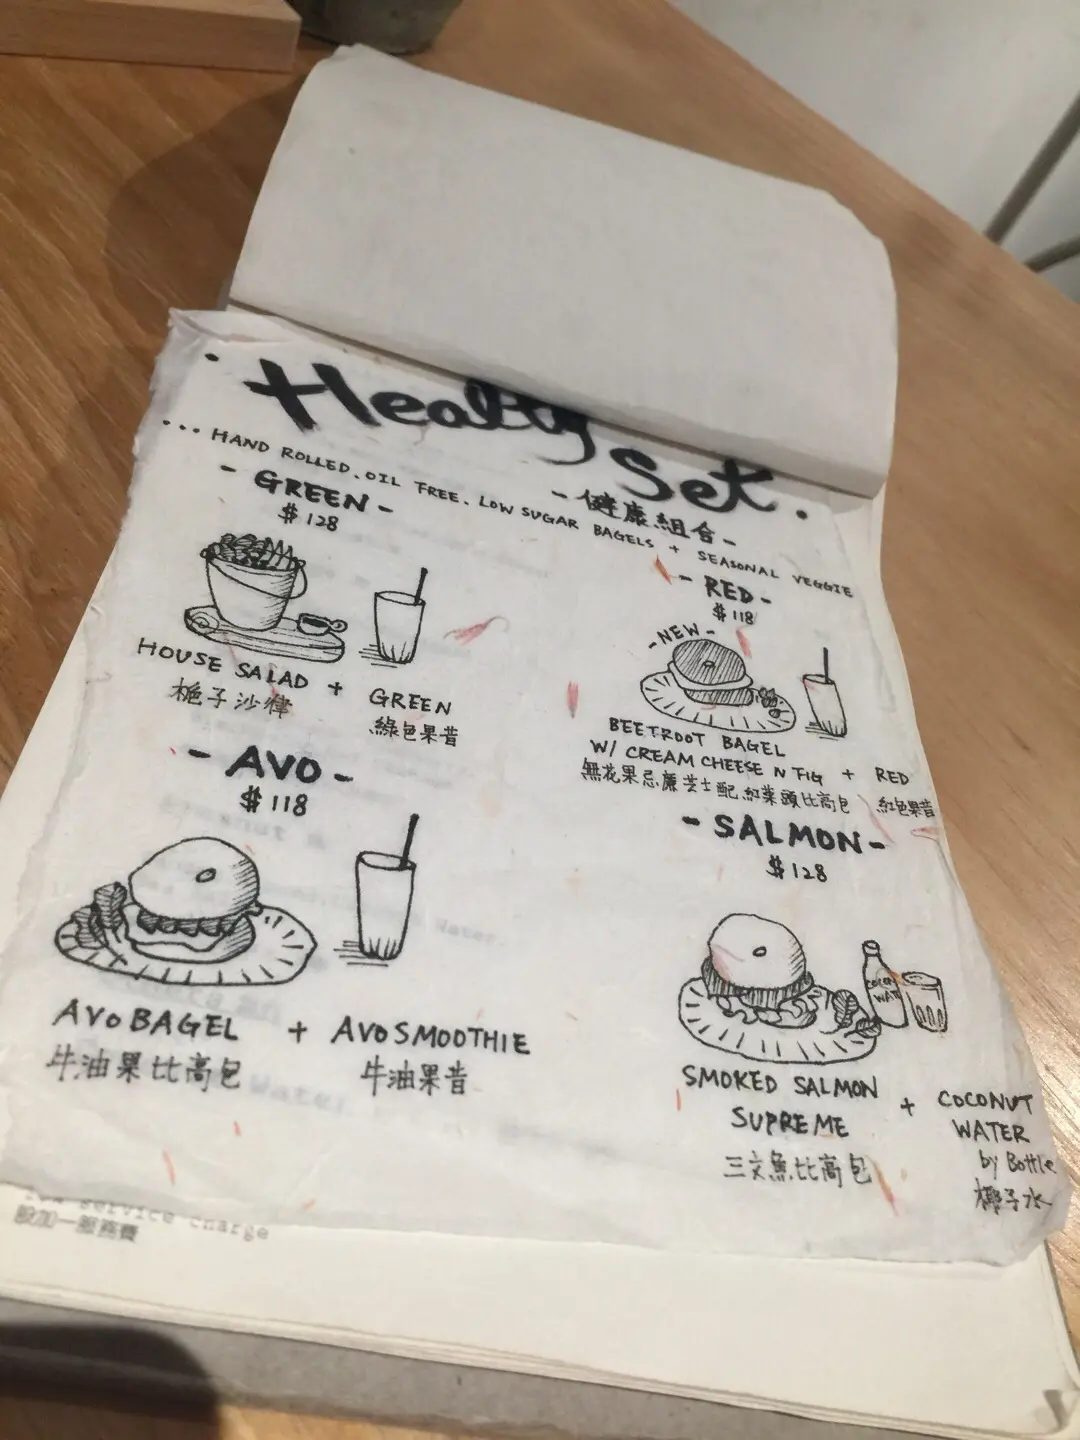 Healty
Set
- 健康組合 -
... HAND ROLLED. OIL FREE. LOW SUGAR BAGELS + SEASONAL VEGGIE
- GREEN -
$128
HOUSE SALAD + GREEN
梔子沙律 綠色果昔
- RED -
$118
- NEW -
BEETROOT BAGEL
W/ CREAM CHEESE N FIG + RED
無花果忌廉芝士配紅菜頭比高包 紅色果昔
- AVO -
$118
AVO BAGEL + AVO SMOOTHIE
牛油果比高包 牛油果昔
- SALMON -
$128
SMOKED SALMON
SUPREME
三文魚比高包
+
COCONUT
WATER
by Bottle
椰子水
service charge
設加一服務費